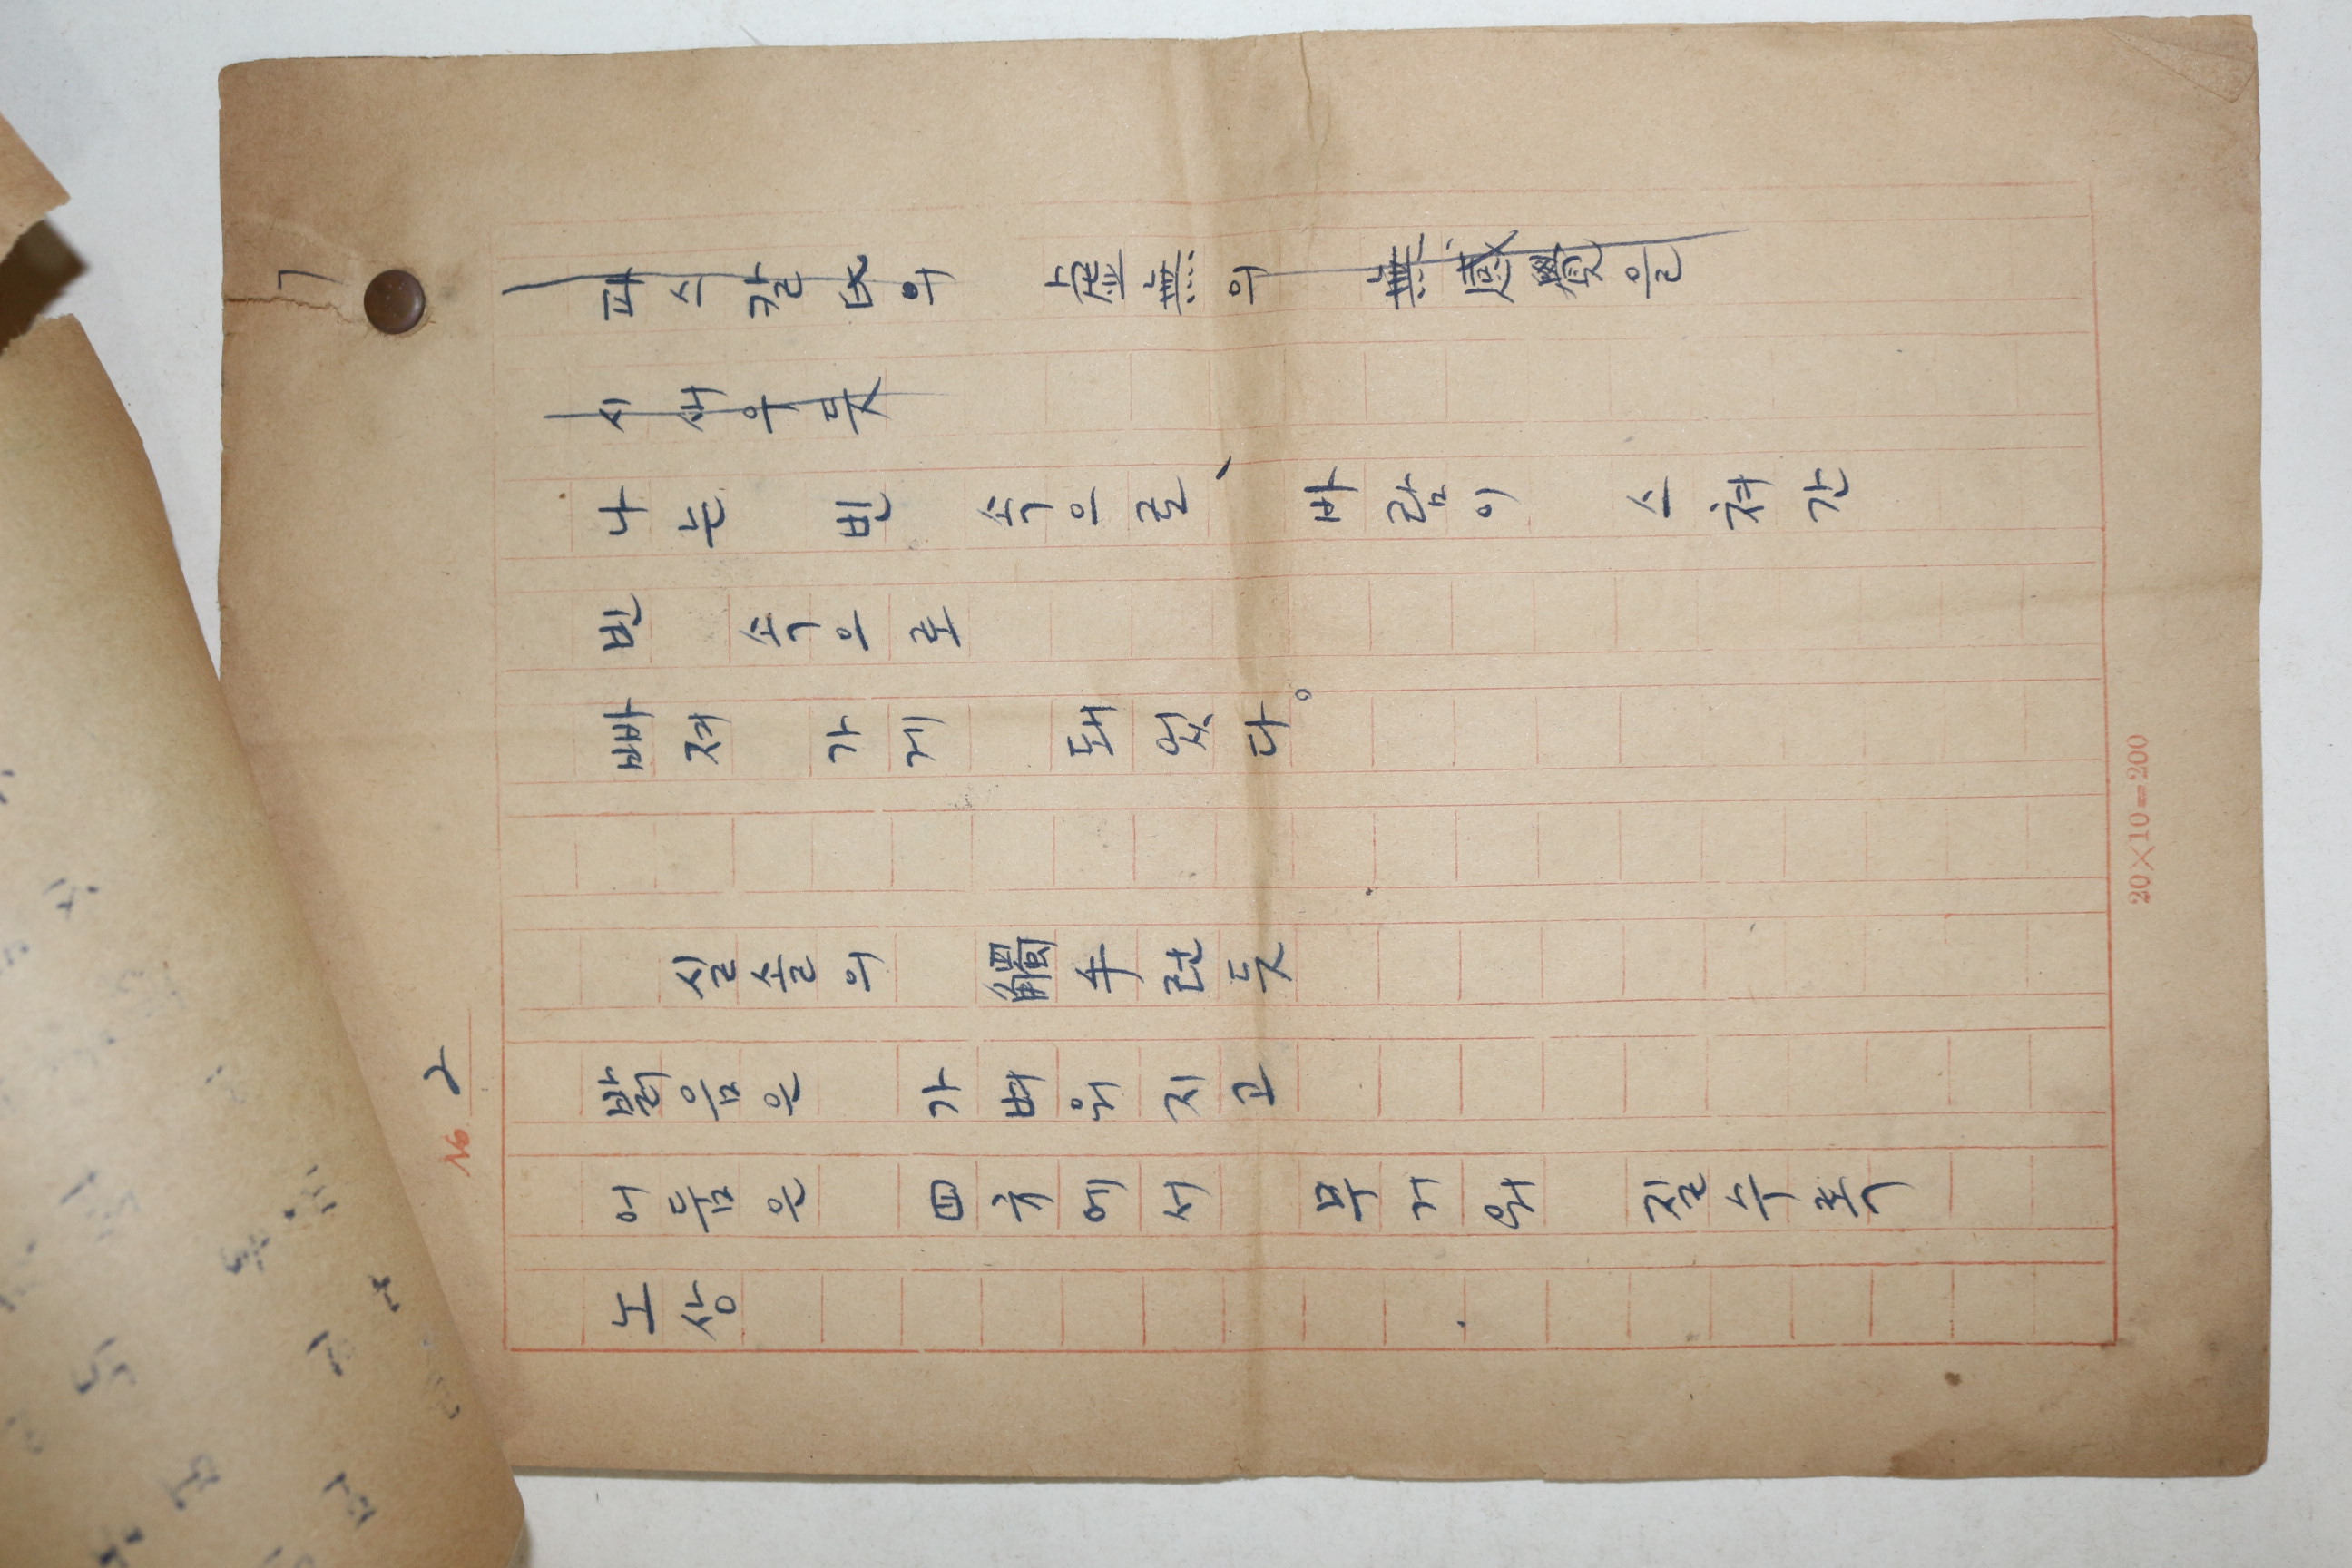 7
No 2
파스칼氏의 虛無의 無感覺을
시새우듯
나는 빈 속으로、 바람이 스쳐간
빈 속으로
빠져 가게 돼었다。
실솔의 觸手런듯
밝음은 가벼워지고
어둠은 四규에서 무거워 질수록
노상
20×10=200